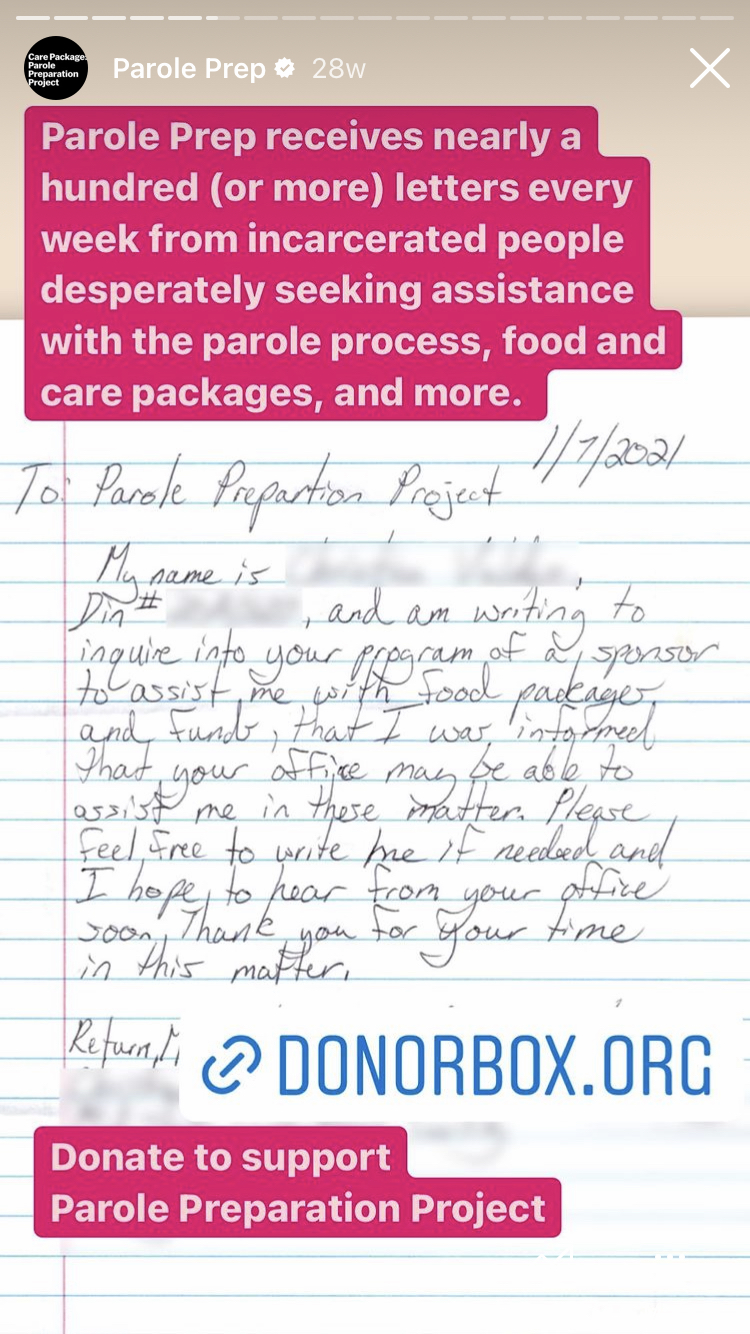 Care Package:
Parole
Preparation
Project
Parole Prep 28w
Parole Prep receives nearly a
hundred (or more) letters every
week from incarcerated people
desperately seeking assistance
with the parole process, food and
care packages, and more.
1/7/2021
To: Parole Prepartion Project
My name is
Din #, and am writing to
inquire into your program of a sponsor
to assist me with food packages
and funds, that I was informed
that your office may be able to
assist me in these matter. Please
feel free to write me if needed and
I hope to hear from your office
soon, Thank you for your time
in this matter.
Return
DONORBOX.ORG
Donate to support
Parole Preparation Project